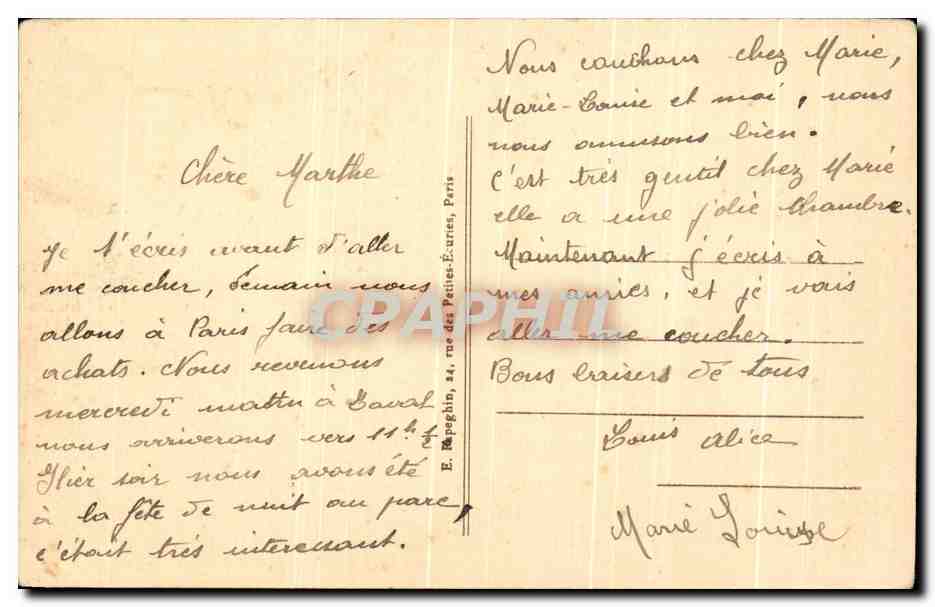 Chère Marthe
Je t'écris avant d'aller
me coucher, demain nous
allons à Paris faire des
achats. Nous revenons
mercredi matin à Laval
nous arriverons vers 11h ½
Hier soir nous avons été
à la fête de nuit au parc,
c'était très interessant.
E. Papeghin, 24, rue des Petites-Ecuries, Paris
Nous couchons chez Marie,
Marie-Louise et moi, nous
nous amusons bien.
C'est très gentil chez Marie
elle a une jolie chambre.
Maintenant j'écris à
mes amies, et je vais
aller me coucher.
Bons baisers de tous
Louis Alice
Marie Louise
CRAPHIL